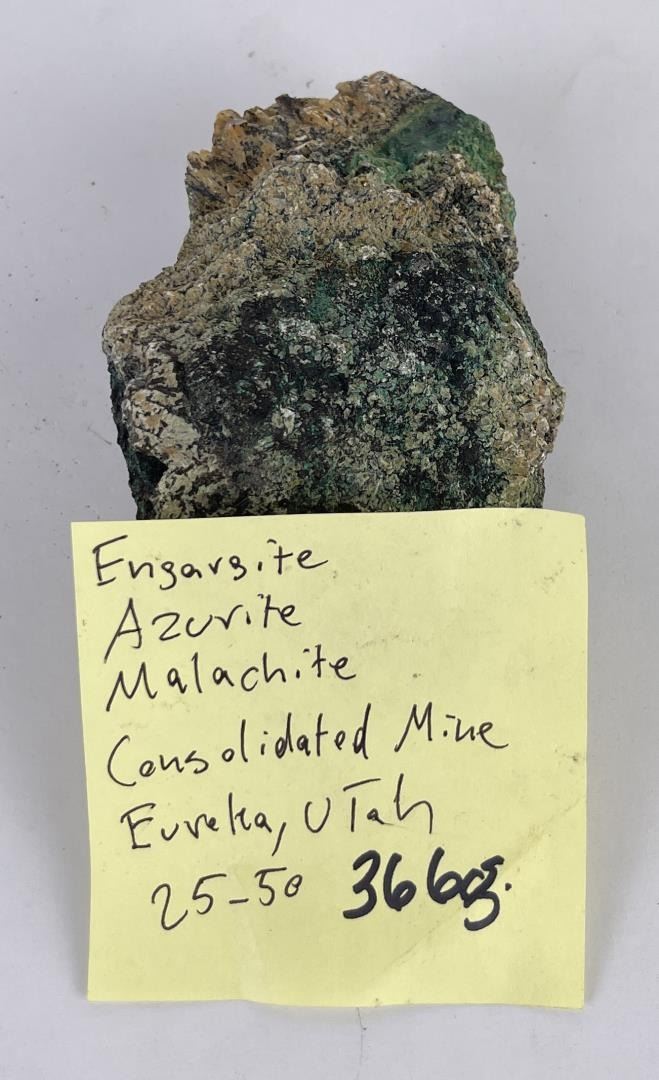 Ensarsite
Azurite
Malachite
Consolidated Mine
Eureka, UTah
25-50 366g.